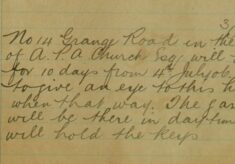 3
No 14 Grange Road in the
of A. P. A Church Esq. will
for 10 days from 4th July 06,
to give an eye to this h
when that way. The gar
will be there in daytime
will hold the keys